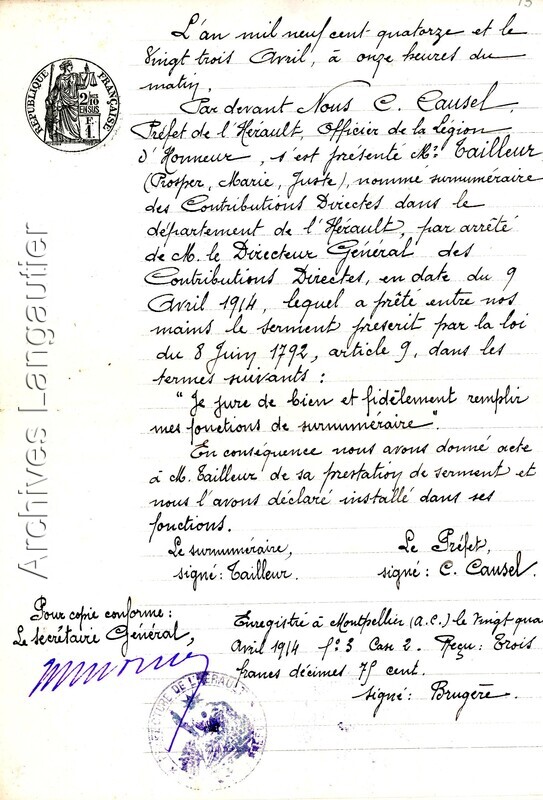 15
L'an mil neuf cent quatorze et le
vingt trois Avril, à onze heures du
matin,
Par devant Nous C. Causel,
Préfet de l'Hérault, Officier de la Légion
d'Honneur, s'est présenté Mr. Tailleur
(Prosper, Marie, Juste), nommé surnuméraire
des Contributions Directes dans le
département de l'Hérault, par arrêté
de M. le Directeur Général des
Contributions Directes, en date du 9
Avril 1914, lequel a prêté entre nos
mains le serment prescrit par la loi
du 8 Juin 1792, article 9, dans les
termes suivants :
"Je jure de bien et fidèlement remplir
mes fonctions de surnuméraire".
En conséquence nous avons donné acte
à M. Tailleur de sa prestation de serment et
nous l'avons déclaré installé dans ses
fonctions.
Le surnuméraire,
signé: Tailleur.
Le Préfet,
signé: C. Causel.
Pour copie conforme:
Le secrétaire Général,
Enregistré à Montpellier (A.C.) le vingt qua
Avril 1914 fo. 3 Case 2. Reçu: Trois
francs décimes 75 cent.
signé: Brugère
RÉPUBLIQUE FRANÇAISE
2/10
EN SUS
F.
1
Archives Langautier
DE L'HÉRAULT